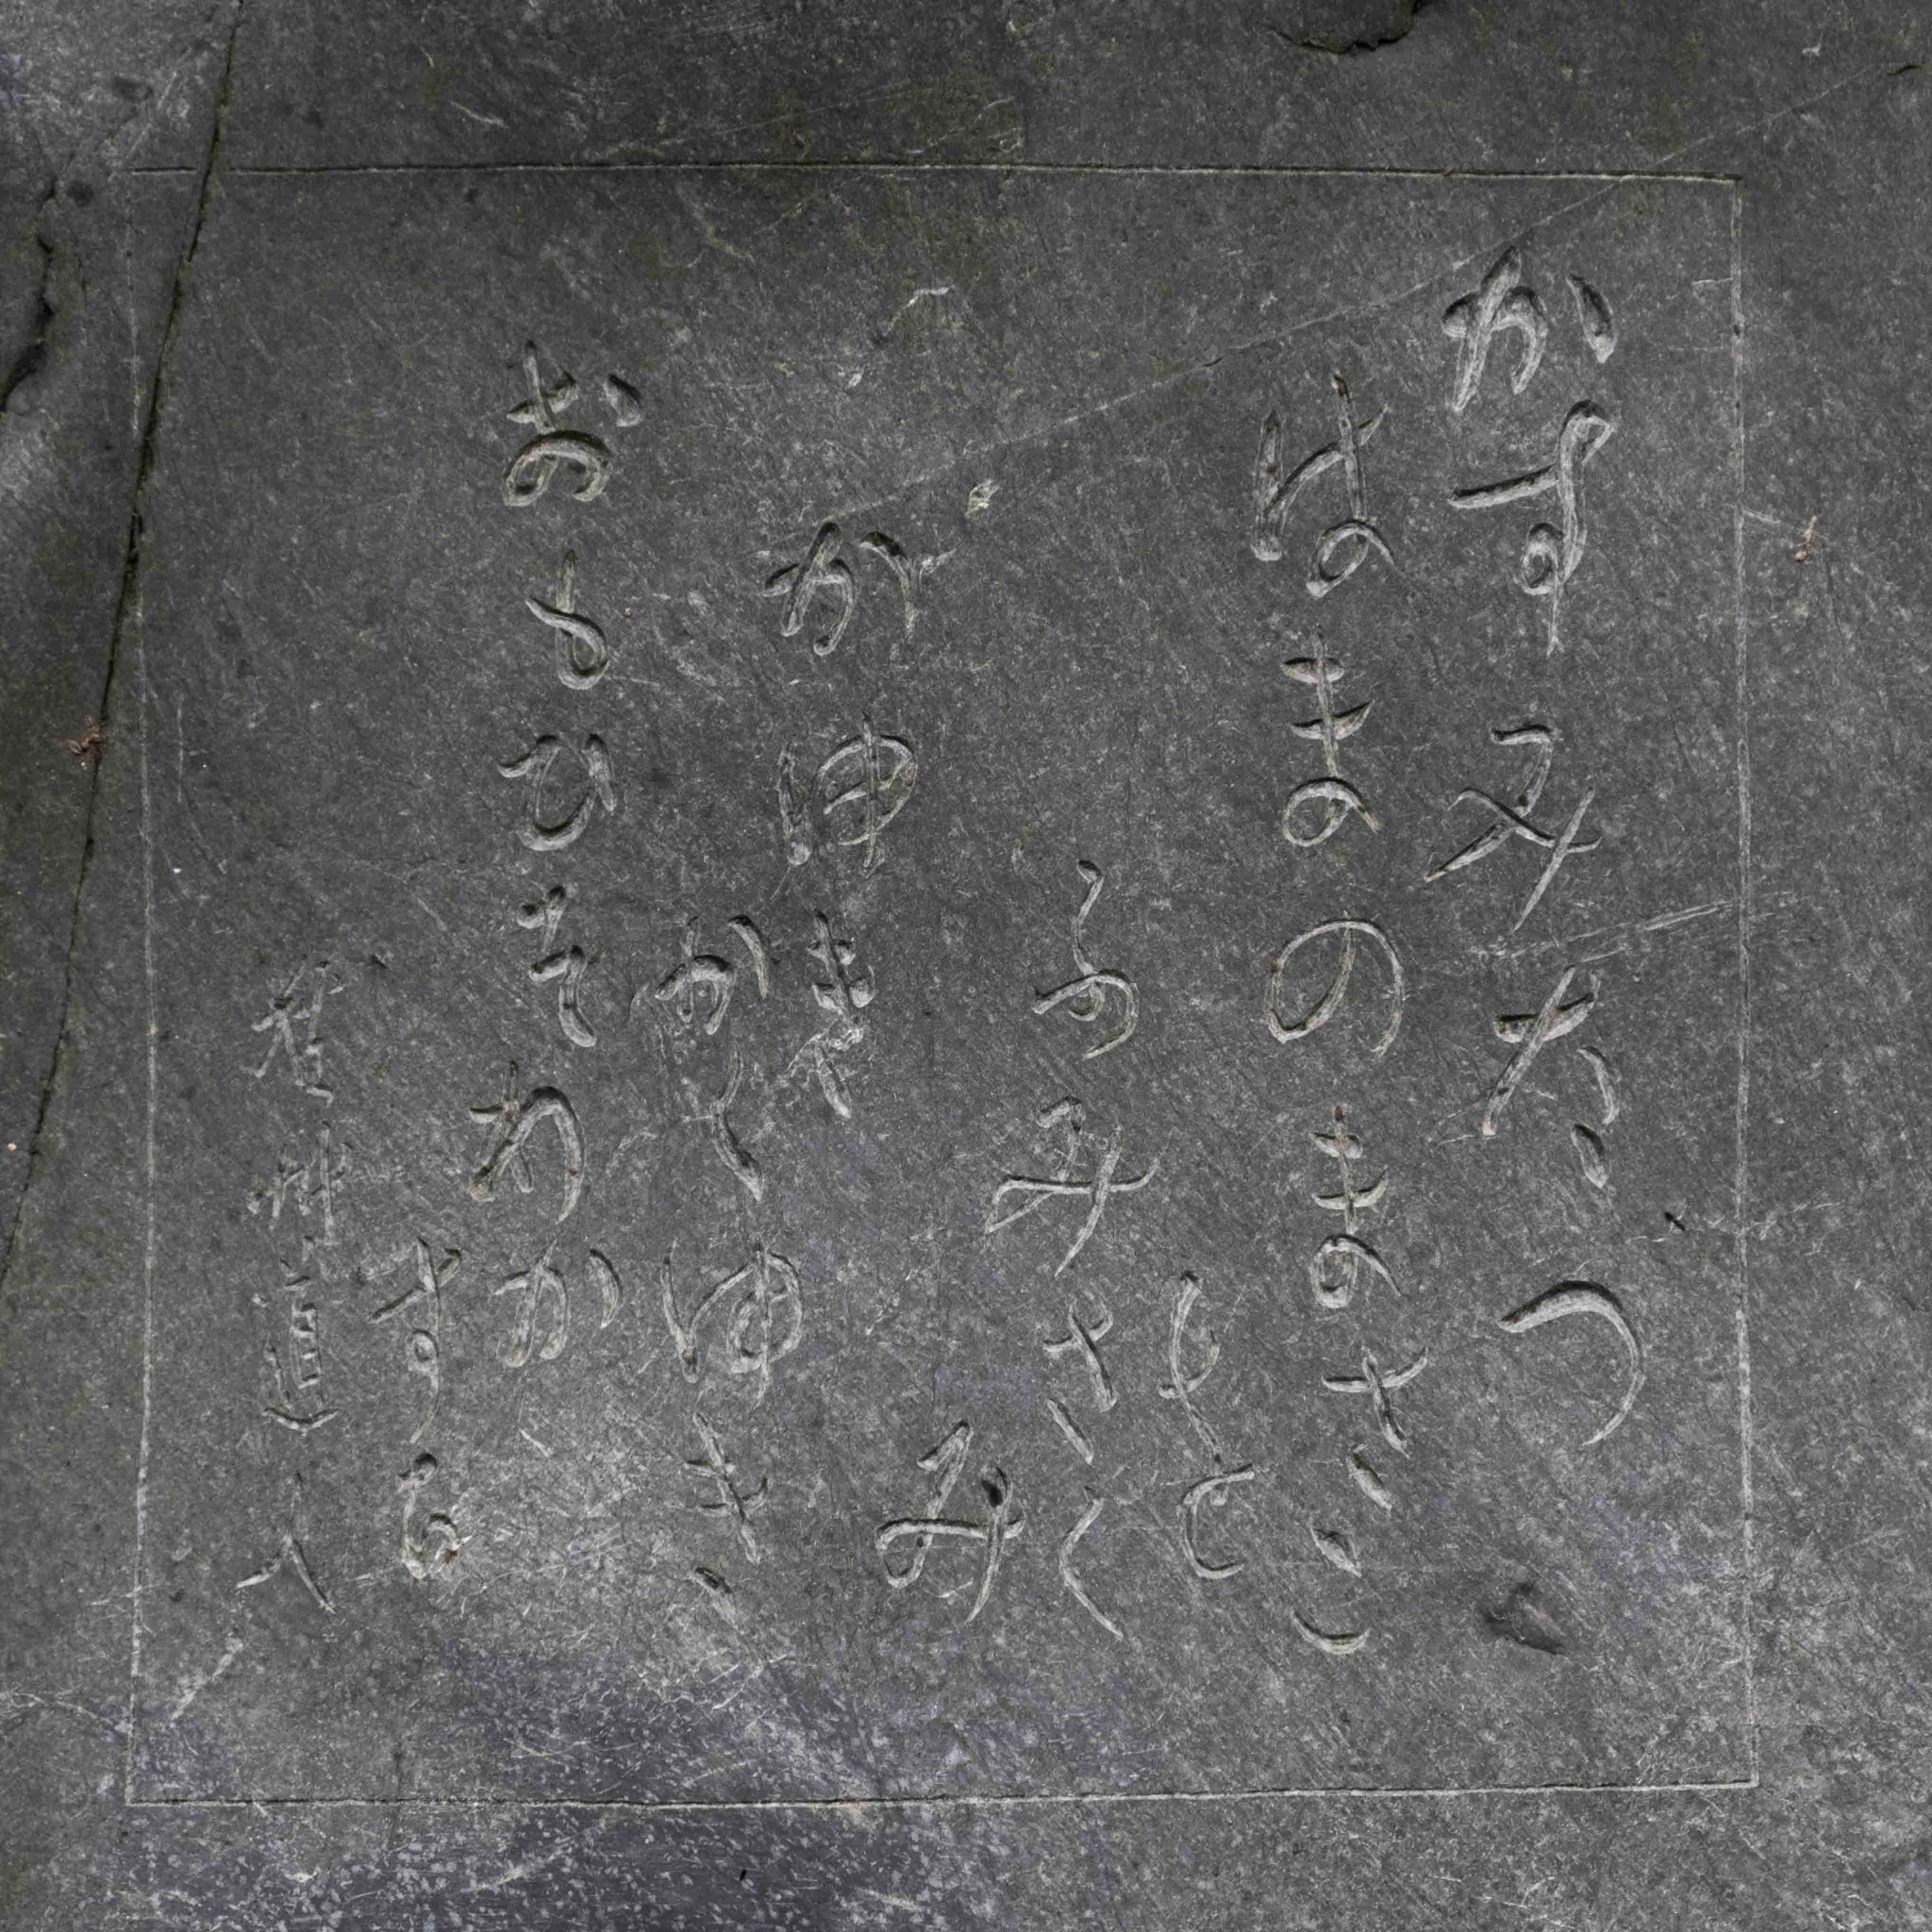 かすみたつ
はまのまさこ
を
ふみさく
み
かゆき
かくゆき
おもひそわか
する
秋艸道人